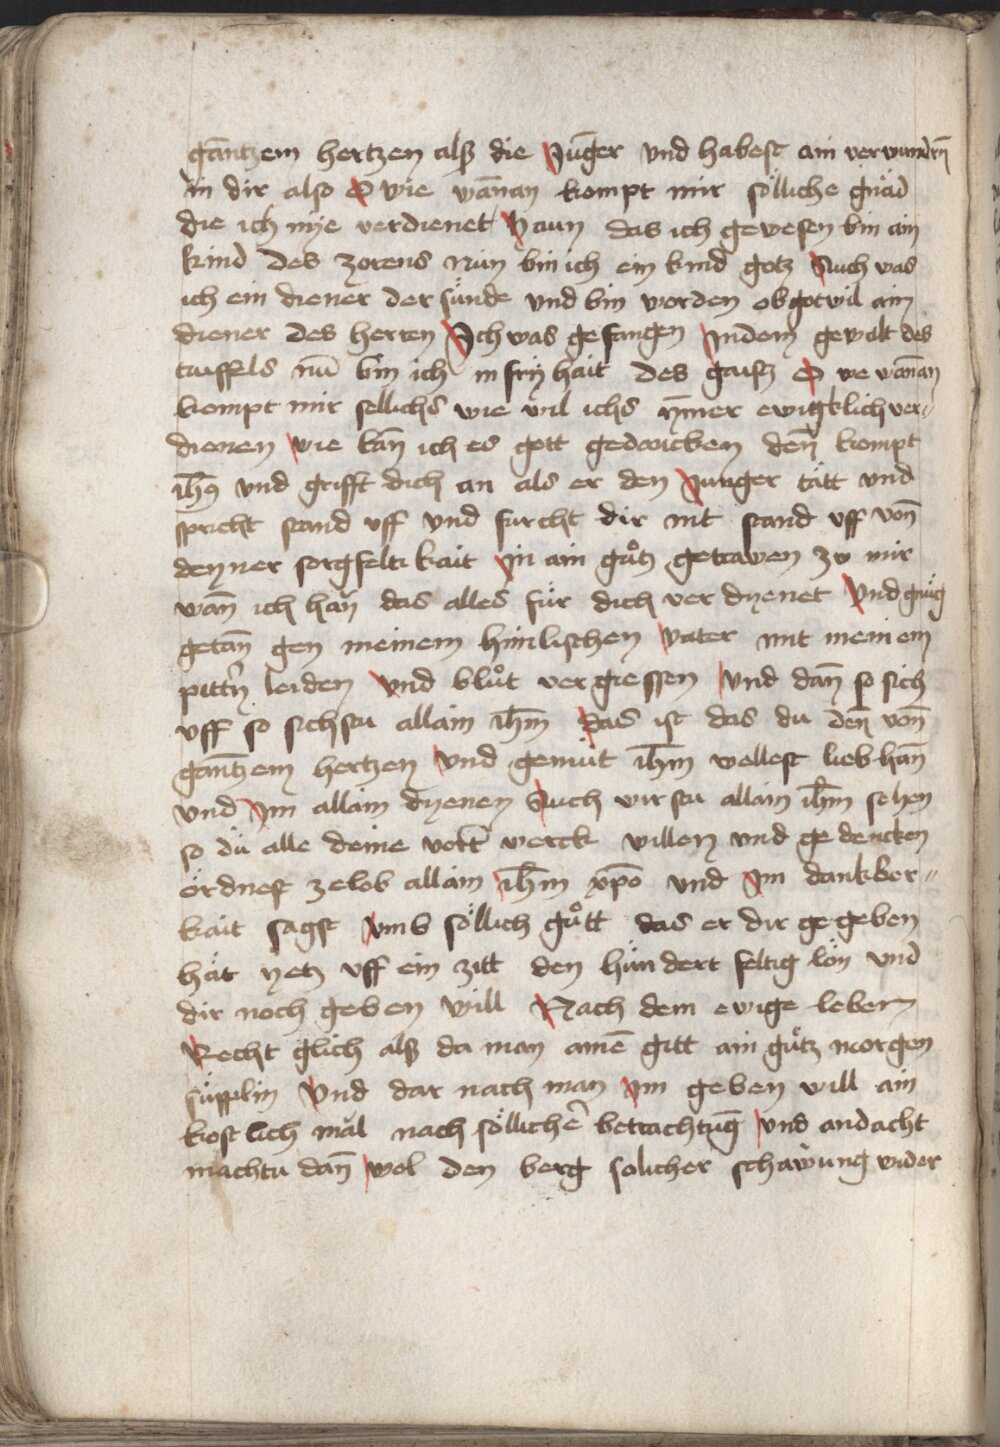 gantzem hertzen alß die Jūger vnd habest ain verwundrn̄
in dir also O wie wānan kompt mir sölliche gnād
die ich nÿe verdienet haun das ich gewesen bin ain
kind des zorens nun bin ich ein kind gotz Auch was
ich ein diener der sünde vnd bin worden ob got wil ain
diener des herren Ich was gefangen Jn dem gewalt des
tuffels nū bin ich in frÿhait des gaistz O we wānan
kompt mir sellichs wie wil ichs ÿmer ewigklich ver-
dienen wie kan̄ ich es gott gedancken den̄ kompt
ih̄s vnd grifft dich an als er den Junger tätt vnd
spricht stand vff vnd furcht dir nit stand vff von̄
deyner sorgfeltikait Jn ain gůtz getrawen zu mir
wan̄ ich han̄ das alles für dich verdyenet Vnd gnüg
getān gen meinem himlischen vater mit meinem
pittrn̄ leiden vnd blůt vergiessen Vnd dan̄ so sich
vff so sichstu allain ih̄m das ist das du den̄ von̄
gantzem hertzen vnd gemüt ih̄m wellest lieb han̄
vnd Jm allain dyenen Auch wirstu allain ih̄m sehen
so du alle deine wort werck willen vnd gedencken
ordnest ze lob allain ih̄m xp̄o vnd Jm danckber-
kait sagst vmb söllich gůtt das er dir gegeben
hät yetz vff ein zitt den hundert feltig lön vnd
dir noch geben will Nach dem ewige leben
Recht glich alß da man aine gitt ain gůtz morgen
süpplin Vnd dar nach man im geben will ain
kostlich mäl nach söllicher betrachtūg vnd andacht
machtu dan̄ wol den berg solicher schawung wider